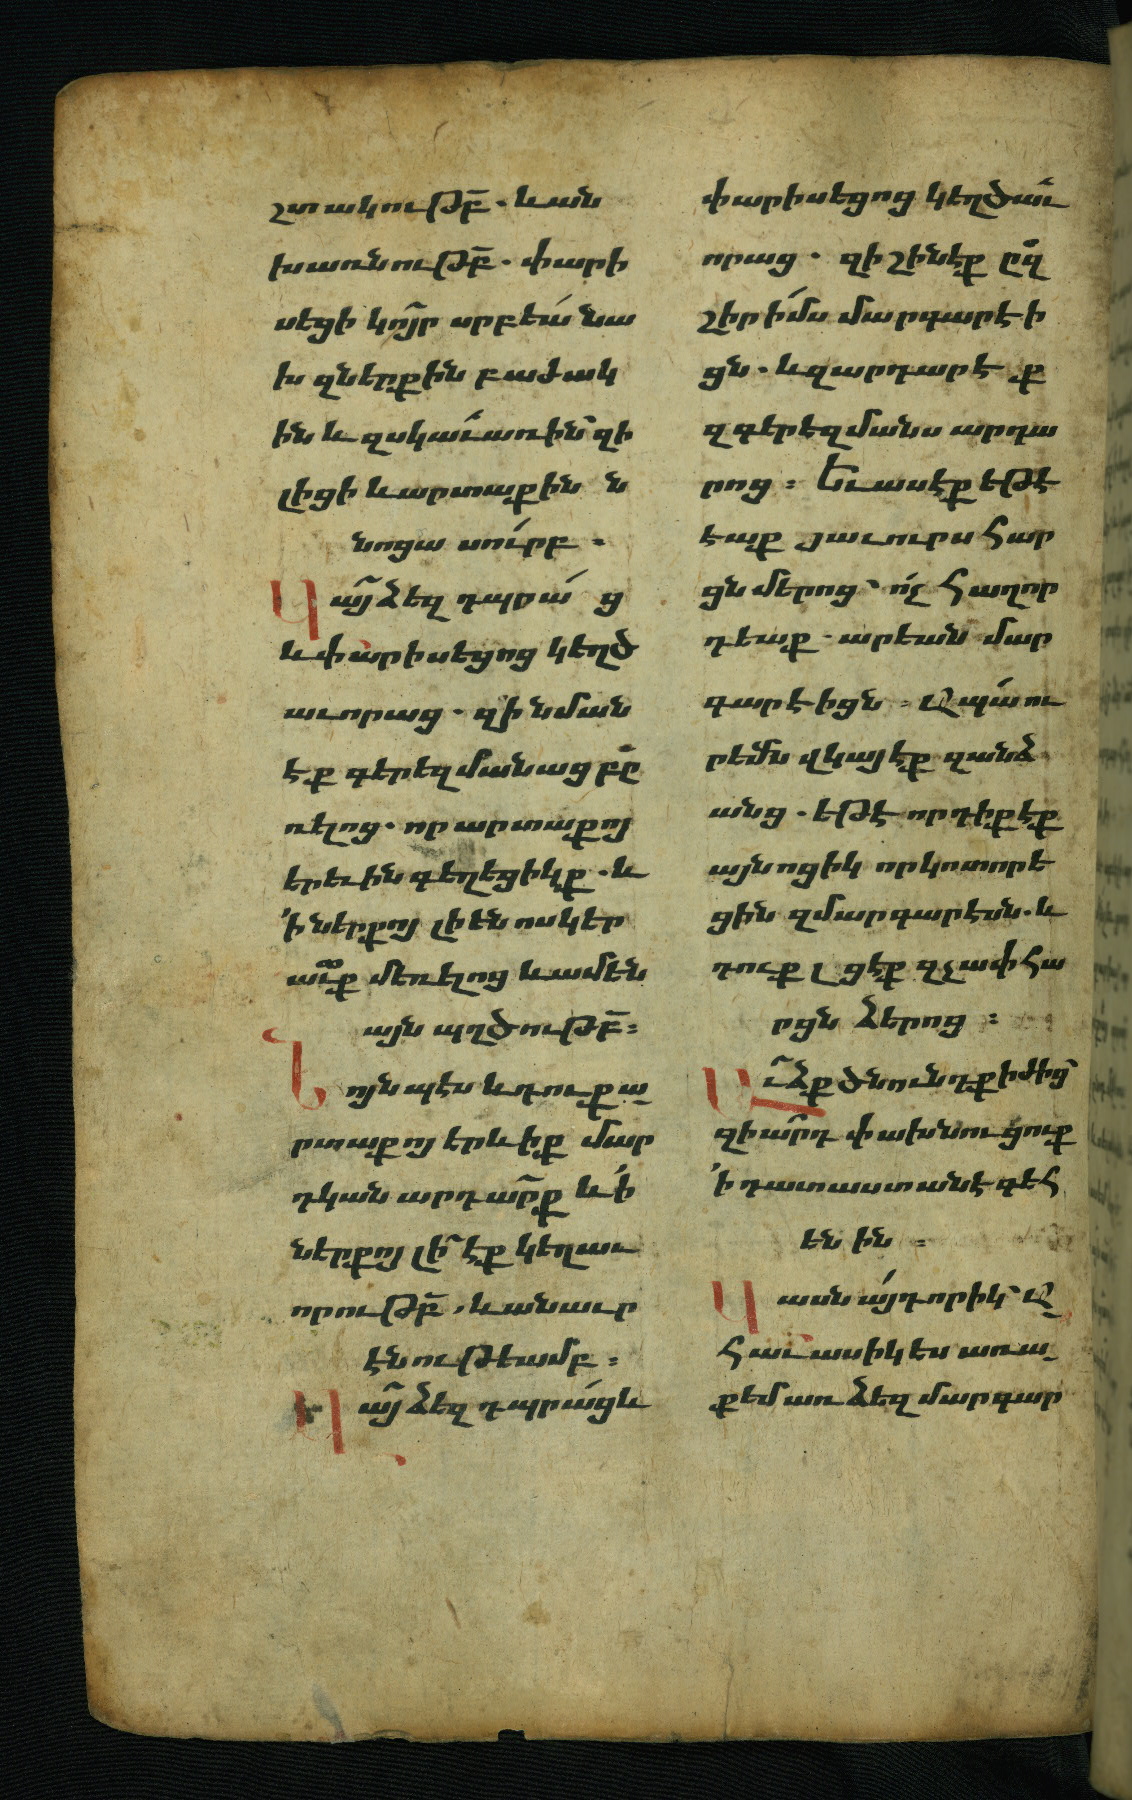 շտակութբ̃ · և ան
խառնութբ̃ · փարի
սեցի կոյ̃ր սրբեա՛ նա
խ զներքին բաժակ
ին և զսկաւառին՝ զի
լիցի և արտաքին ն
նոցա սուրբ ·
Վ այ̃ ձեզ դպրա՛ ց
և փարիսեցոց կեղծ
աւորաց · զի նման
էք գերեզմանաց բռ̊
ռելոց · որ արտաքոյ
երեւին գեղեցիկք · և
՛ի ներքոյ լի են ոսկեր
աւ̃ք մեռելոց և ամեն
այն պղծութբ̃ ։
Ն ոյնպէս և դուք ա
րտաքոյ երևիք մար
դկան արդար̃ք և ՛ի
ներքոյ լի՝ էք կեղաւ
որութբ̃ , և անաւր
էնութեամբ ։
Վ այ̃ ձեզ դպրա՛ց և
փարիսեցոց կեղծաւ
որաց · զի շինէք ըզ
շիրիմս մարգարէի
ցն · և զարդարէ ք
զգերեզմանս արդա
րոց ։ Եւ ասէք եթէ
էաք յաւուրս հար
ցն մերոց՝ ո՛չ հաղոր
դեաք · արեան մար
գարէիցն ։ Ապա՛ ու
րեմն վկայէք զանձ
անց · եթէ որդիք էք
այնոցիկ որ կոտորե
ցին զմարգարէսն · և
դուք լցէք զչափ հա
րցն ձերոց ։
Ա ւ̃ձք ծնունդք իժից՝
զիար̃դ փախնուցուք
՛ի դատաստանէ գեհ
են ին ։
Վ ասն ա՛յդորիկ՝ Ա
հաւասիկ ես առա
քեմ առ ձեզ մարգար